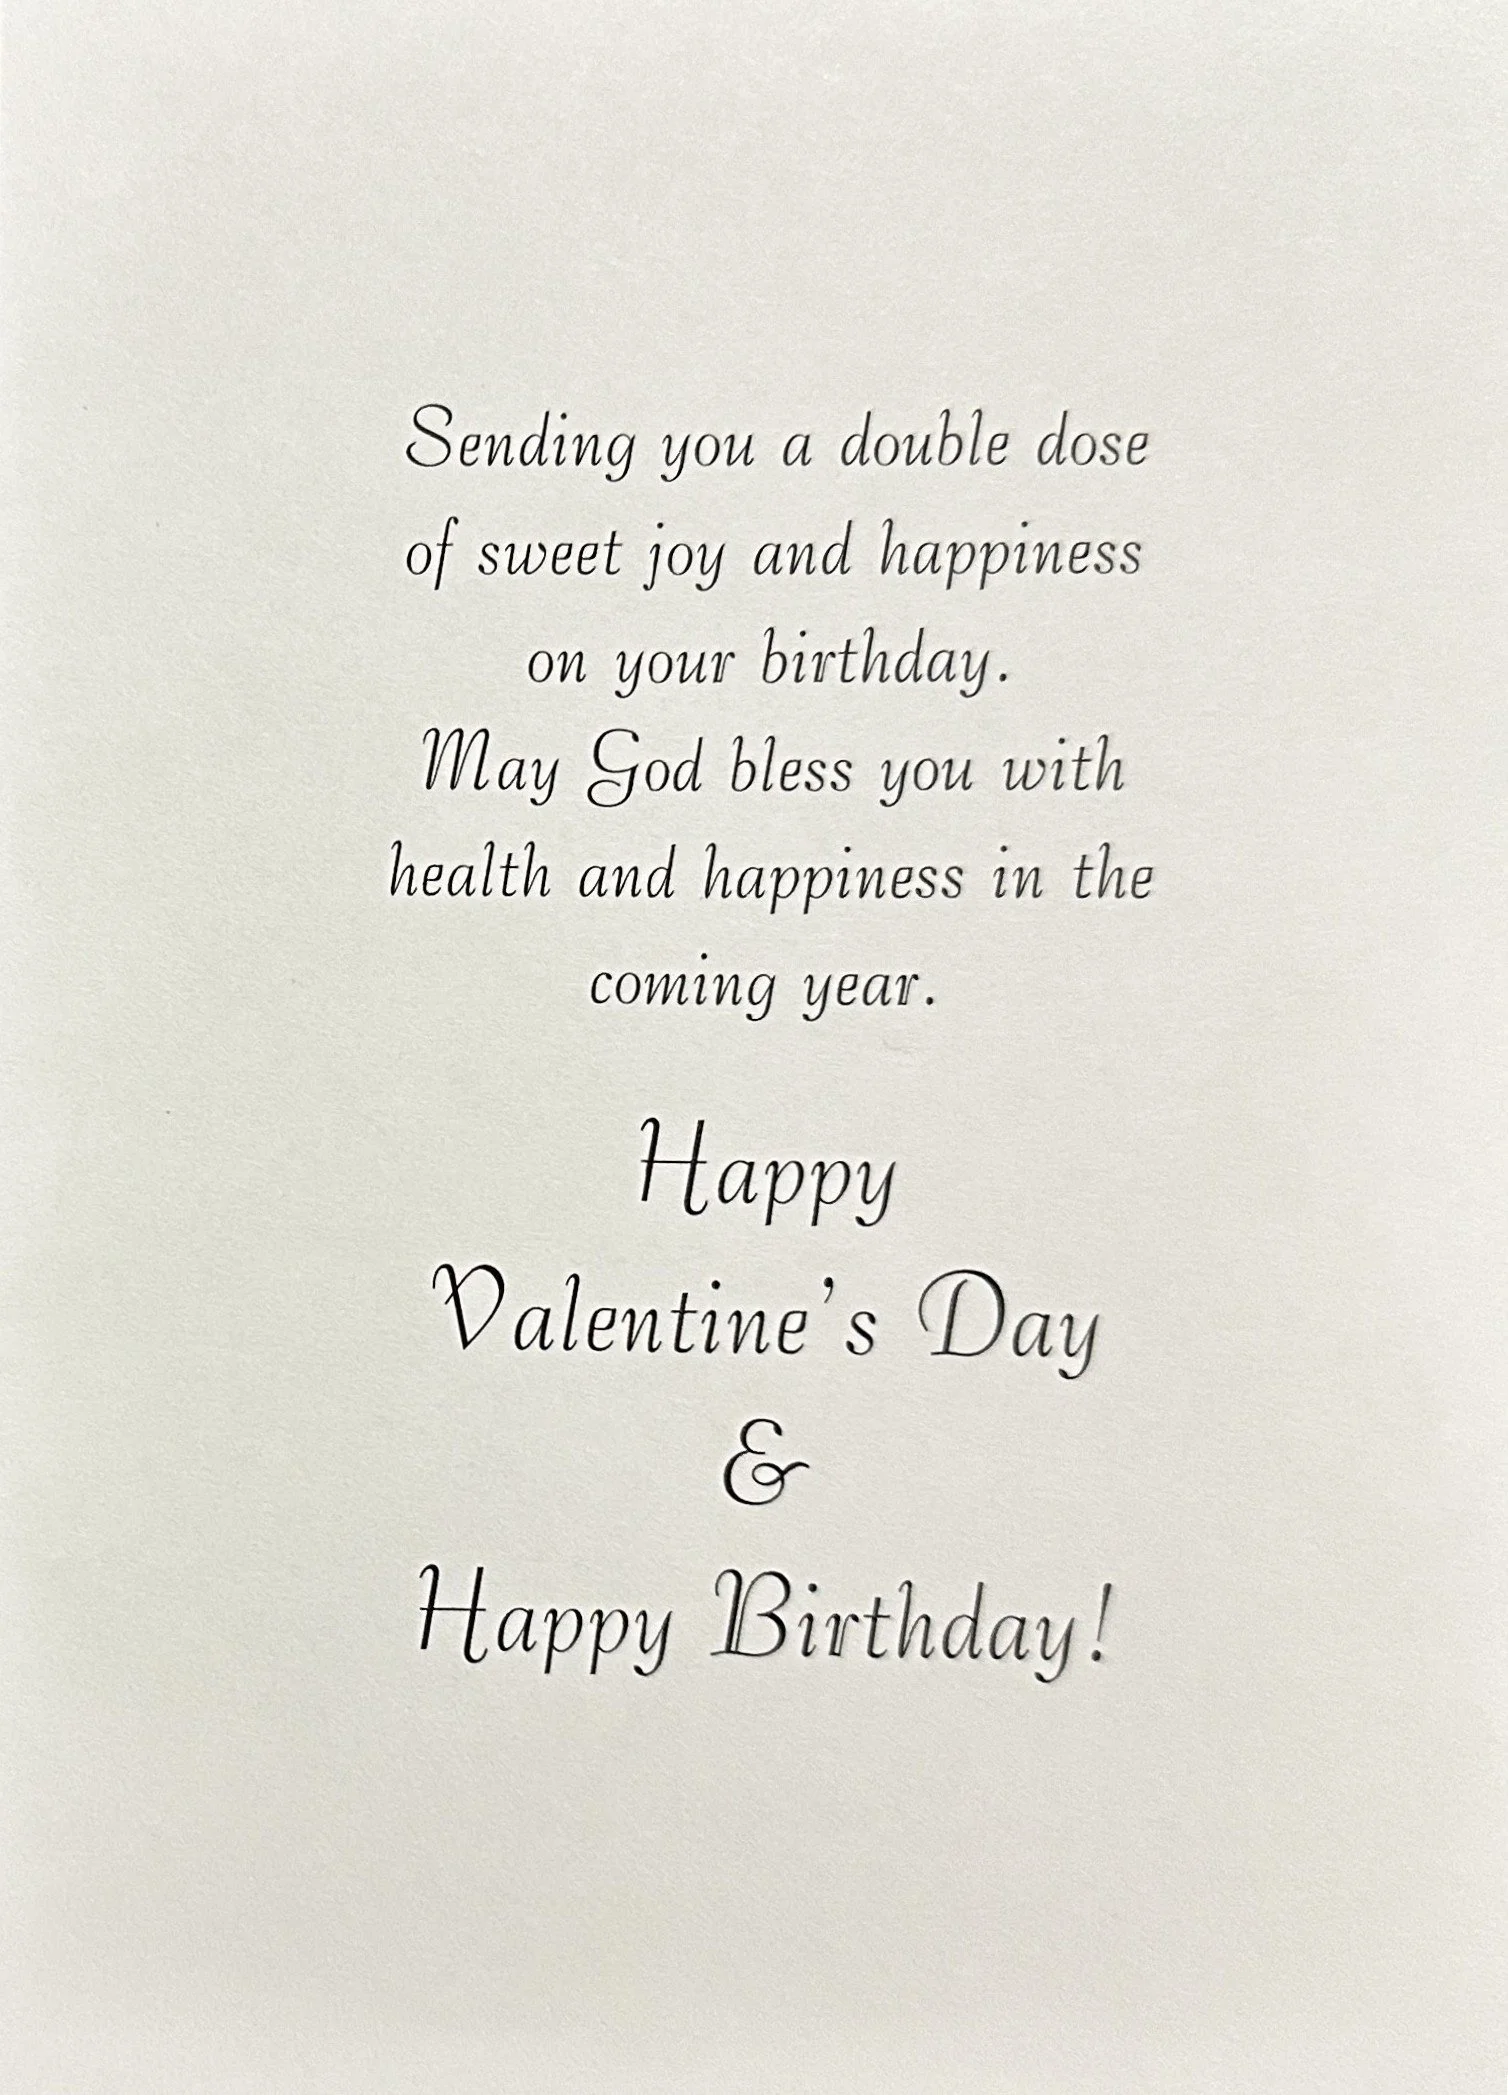 Sending you a double dose
of sweet joy and happiness
on your birthday.
May God bless you with
health and happiness in the
coming year.
Happy
Valentine's Day
&
Happy Birthday!